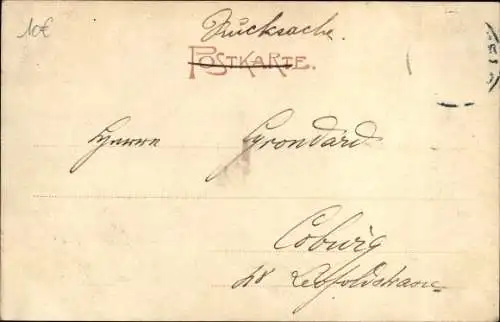 10€
Drucksache.
POSTKARTE.
Herrn
Coburg
28 Leopoldstrasse